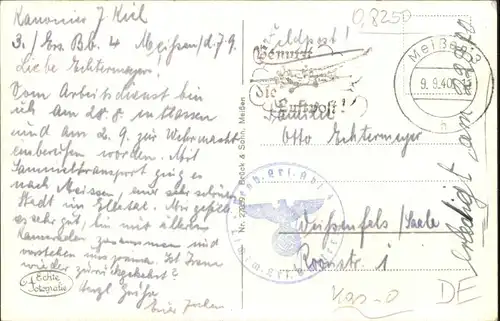 Kanonier J. Kiel
3./Ers. Bb. 4 Meißen, d. 7.9.
Liebe Echtermeyer!
Vom Arbeitsdienst bin
ich am 28.8 entlassen
und am 2.9. zur Wehrmacht
einberufen worden. Mit
Sammeltransport ging es
nach Meissen, eine sehr schöne
Stadt im Elbetal. Mir gefällt
es sehr gut, bin mit älteren
Kameraden zusammen und
verstehen uns prima. Ist Irene
wieder zurückgekehrt?
Herzl. Grüße
Euer Jochen
Echte
Fotografie
Nr. 23297 Brück & Sohn, Meißen
0,8250
Feldpost!
Benutzt
Die
Luftpost!
Meißen 3
9.9.40
Familie
Otto Echtermeyer
Weißenfels/Saale
Roonstr. 1
erledigt am
Kas-0
DE